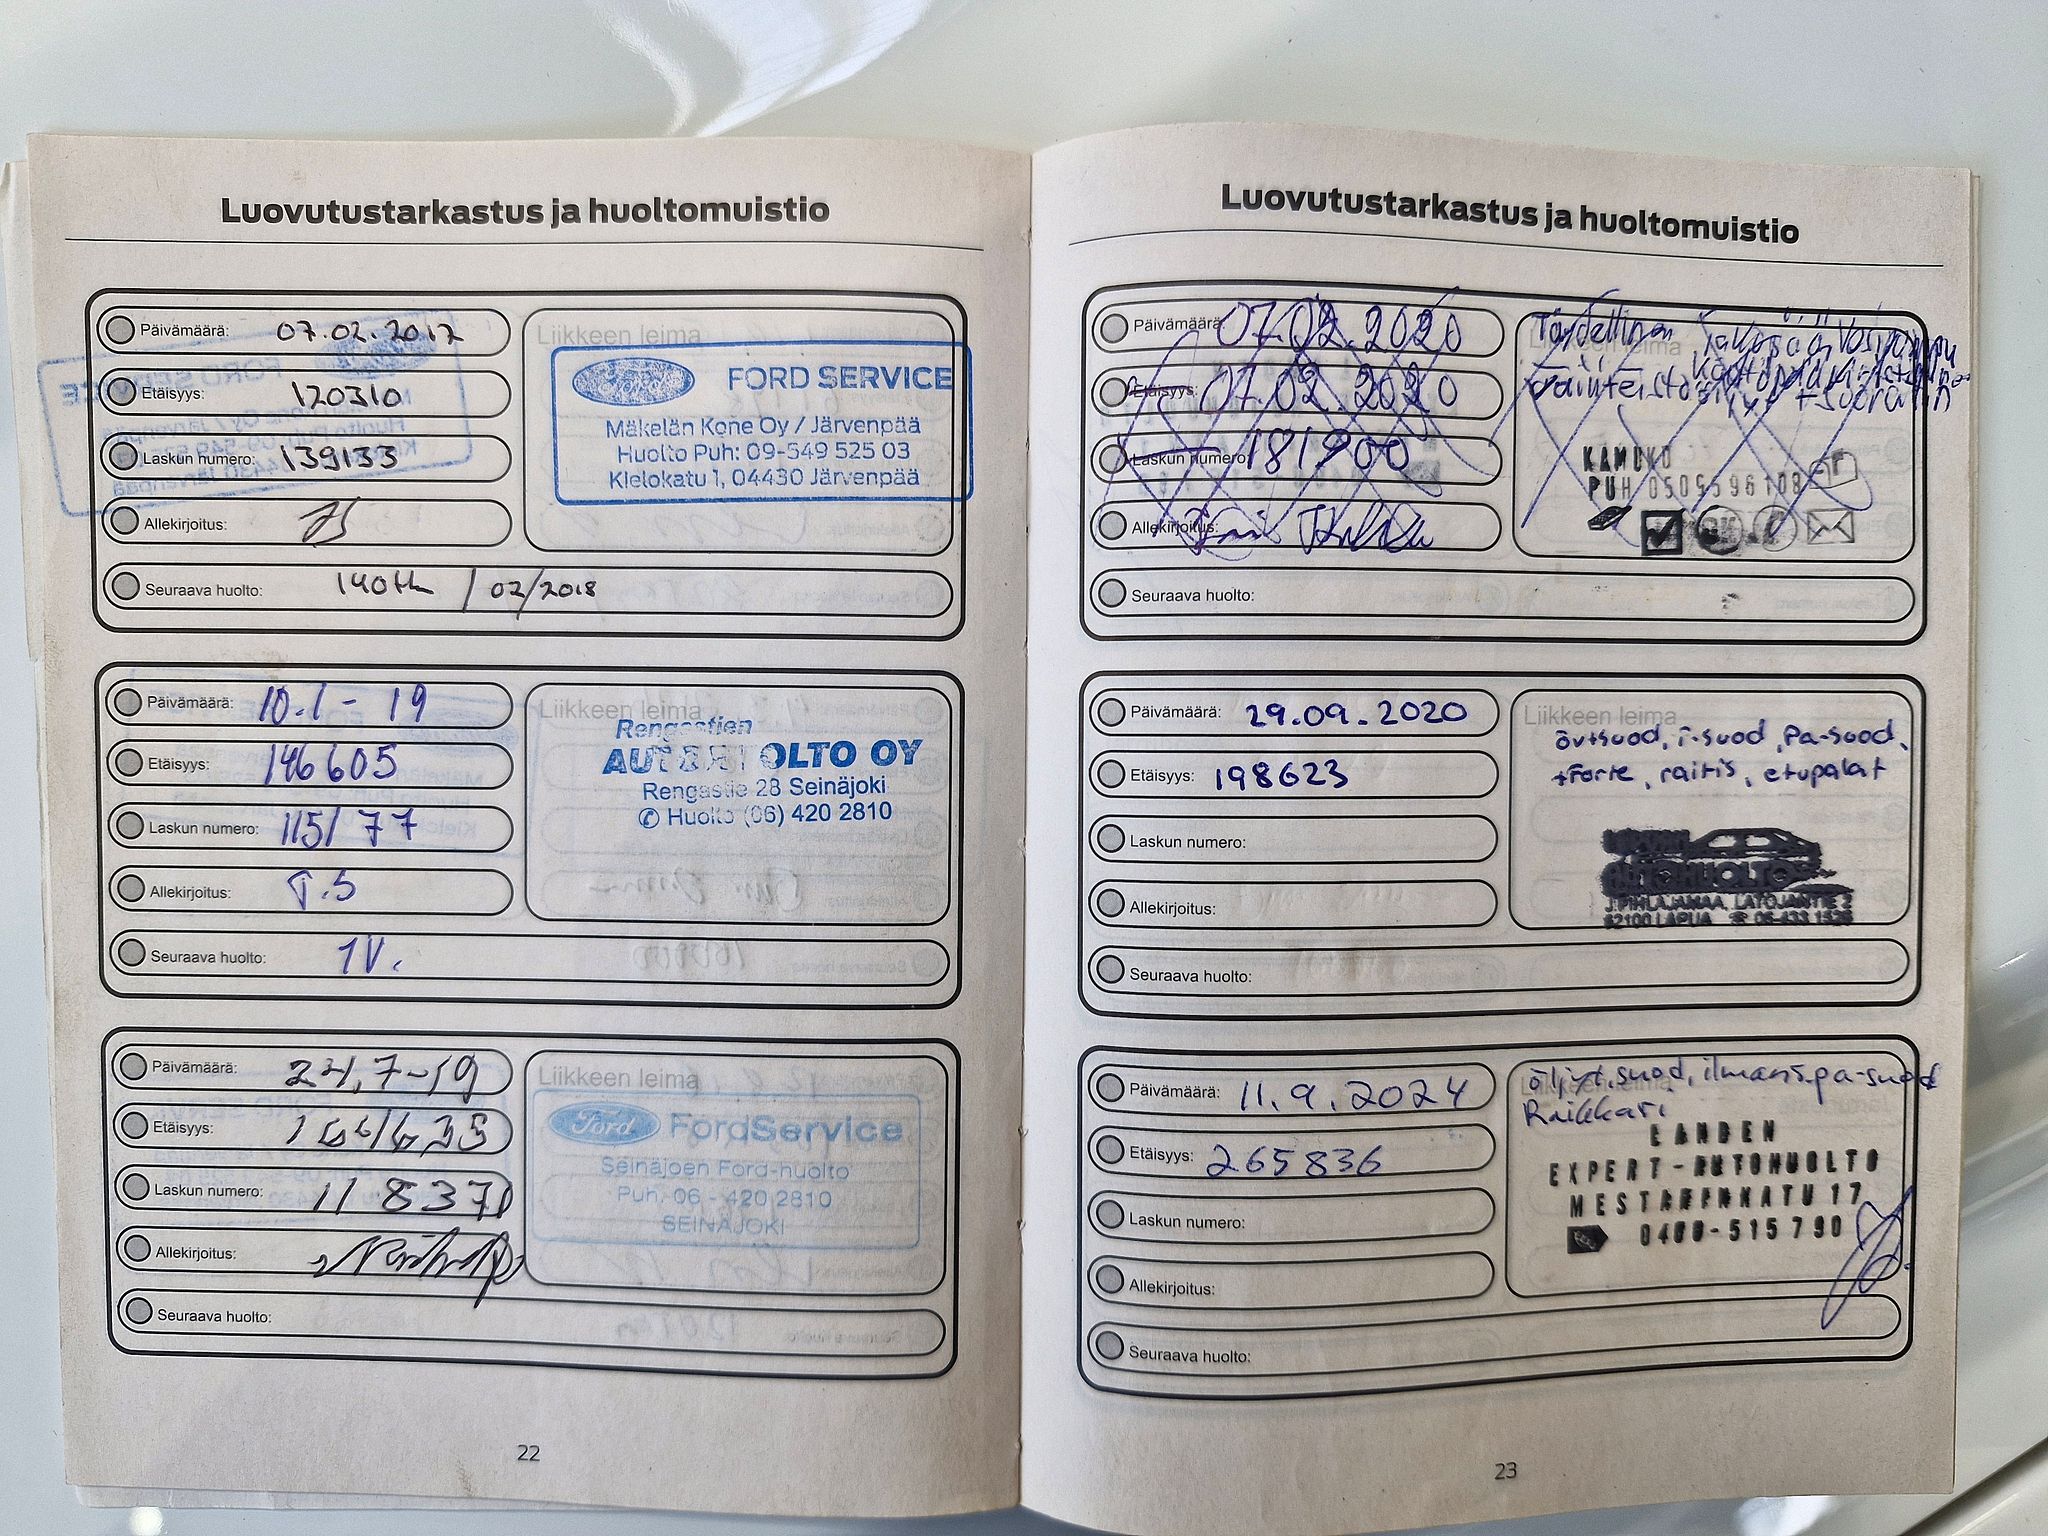 Luovutustarkastus ja huoltomuistio
Päivämäärä: 07.02.2017
Etäisyys: 120310
Laskun numero: 139133
Allekirjoitus:
Seuraava huolto: 140tkm / 02/2018
Liikkeen leima
Ford FORD SERVICE
Mäkelän Kone Oy / Järvenpää
Huolto Puh: 09-549 525 03
Kielokatu 1, 04430 Järvenpää
Päivämäärä: 10.1-19
Etäisyys: 146605
Laskun numero: 115177
Allekirjoitus: T.S
Seuraava huolto: 1V.
Liikkeen leima
Rengastien
AUTOHUOLTO OY
Rengastie 28 Seinäjoki
✆ Huolto (06) 420 2810
Päivämäärä: 24,7-19
Etäisyys:
Laskun numero: 11 8371
Allekirjoitus:
Seuraava huolto:
Liikkeen leima
Ford FordService
Seinäjoen Ford-huolto
Puh. 06 - 420 2810
SEINÄJOKI
22
Luovutustarkastus ja huoltomuistio
Päivämäärä: 07.02.2020
Etäisyys: 07.02.2020
Laskun numero: 181900
Allekirjoitus:
Seuraava huolto:
Liikkeen leima
Täydellinen
PUH 0505596108
Päivämäärä: 29.09.2020
Etäisyys: 198623
Laskun numero:
Allekirjoitus:
Seuraava huolto:
Liikkeen leima
öv+suod, i-suod, pa-suod,
+Forte, raitis, etupalat
AUTOHUOLTO
J.PIHLAJAMAA, LATOJANTIE 2
62100 LAPUA ☎ 06-433 1526
Päivämäärä: 11.9.2024
Etäisyys: 265836
Laskun numero:
Allekirjoitus:
Seuraava huolto:
Liikkeen leima
öljyt.suod, ilmans.pa-suod
Raikkari
EXPERT-AUTOHUOLTO
MESTARINKATU 17
0400-515790
23